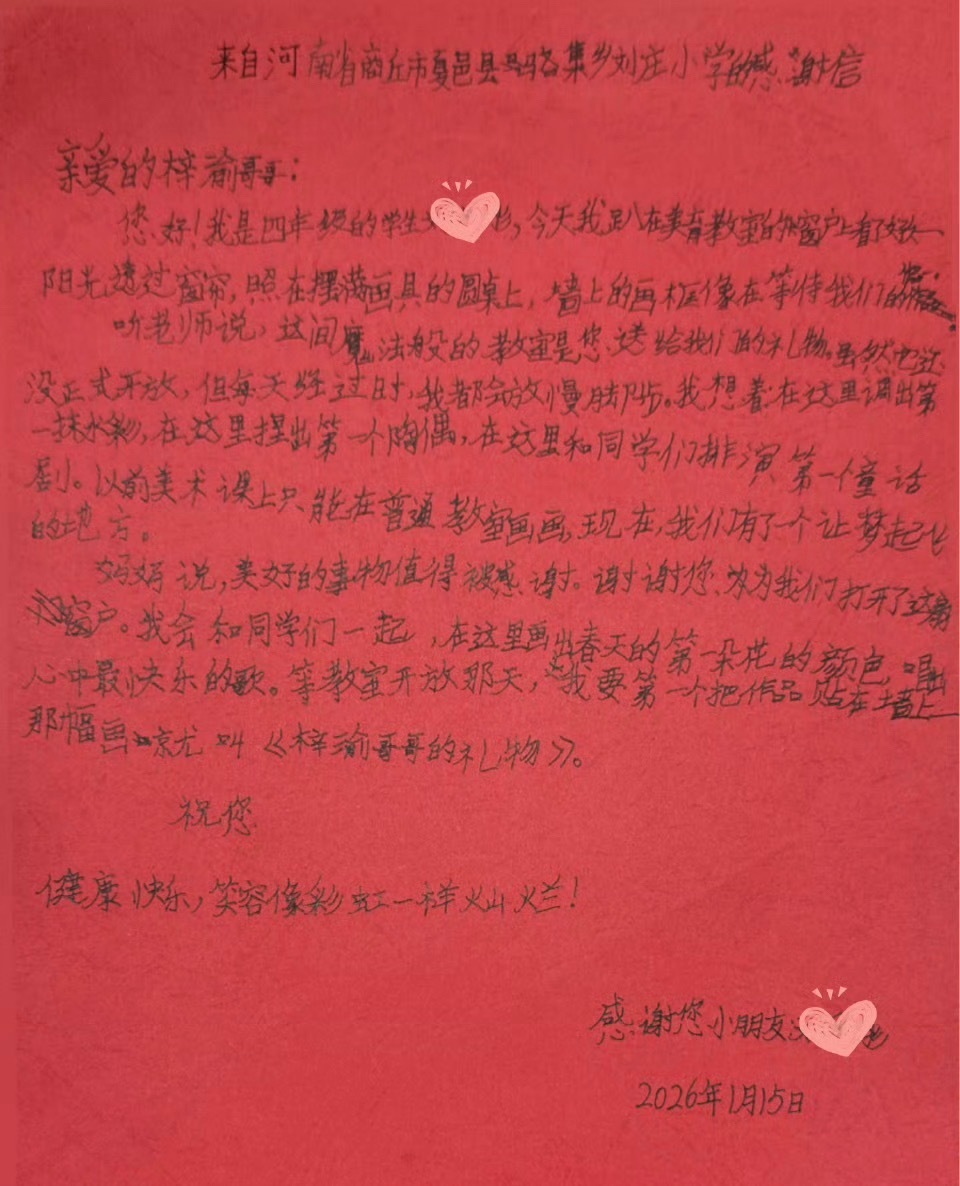 来自河南省商丘市夏邑县马头集乡刘庄小学的感谢信
亲爱的梓渝哥哥:
您好!我是四年级的学生,今天我趴在美育教室的外窗户上看了好久
阳光透过窗帘,照在摆满画具的圆桌上,墙上的画框像在等待我们的
听老师说,这间魔法般的教室是您送给我们的礼物。虽然它还
没正式开放,但每天经过时,我都会放慢脚步。我想着在这里调出第
一抹水彩,在这里捏出第一个陶偶,在这里和同学们排演第一个童话
剧。以前美术课上只能在普通教室画画,现在,我们有了一个让梦起飞
的地方。
妈妈说,美好的事物值得被感谢。谢谢您为我们打开了这扇
窗户。我会和同学们一起,在这里画出春天的第一朵花的颜色,唱出
心中最快乐的歌。等教室开放那天,我要第一个把作品贴在墙上
那幅画就叫《梓渝哥哥的礼物》。
祝您
健康快乐,笑容像彩虹一样灿烂!
感谢您小朋友
2026年1月15日